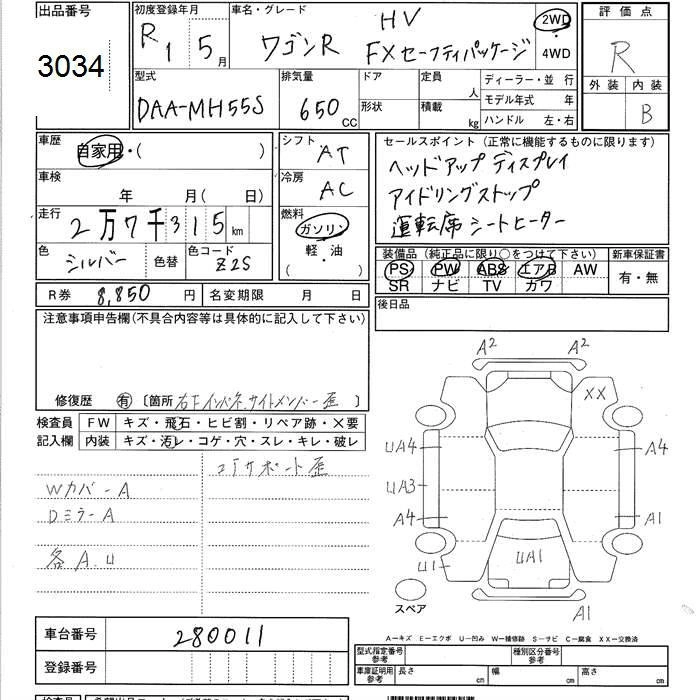 出品番号
3034
初度登録年月
R1 5月
車名・グレード
HV
ワゴンR FXセーフティパッケージ
2WD
・
4WD
評価点
R
外装 内装
B
型式
DAA-MH55S
排気量
650 CC
ドア
形状
定員 人
積載 kg
ディーラー・並 行
モデル年式 年
ハンドル 左・右
車歴
自家用・( )
車検
年 月( 日)
走行
2万7千315km
色
シルバー
色替
色コード
Z2S
シフト
AT
冷房
AC
燃料
ガソリン
軽・油
( )
セールスポイント(正常に機能するものに限ります)
ヘッドアップディスプレイ
アイドリングストップ
運転席シートヒーター
装備品(純正品に限り○をつけて下さい)
PS PW ABS エアB AW
SR ナビ TV カワ
新車保証書
有・無
R券 8,850円
名変期限 月 日
後日品
注意事項申告欄(不具合内容等は具体的に記入して下さい)
修復歴 有 〔箇所 右Fインパネ、サイドメンバー歪 〕
検査員
記入欄
FW キズ・飛石・ヒビ割・リペア跡・×要
内装 キズ・汚レ・コゲ・穴・スレ・キレ・破レ
コアサポート歪
Wカバー A
Dミラー A
各A.U
A2 A2
XX
UA4 A4
UA3
A4 A1
U1 UA1
スペア
A1
A−キズ E−エクボ U−凹み W−補修跡 S−サビ C−腐食 XX−交換済
車台番号 280011
登録番号
型式指定番号
参考
種別区分番号
参考
車庫証明用
参考
長さ cm
幅 cm
高さ cm